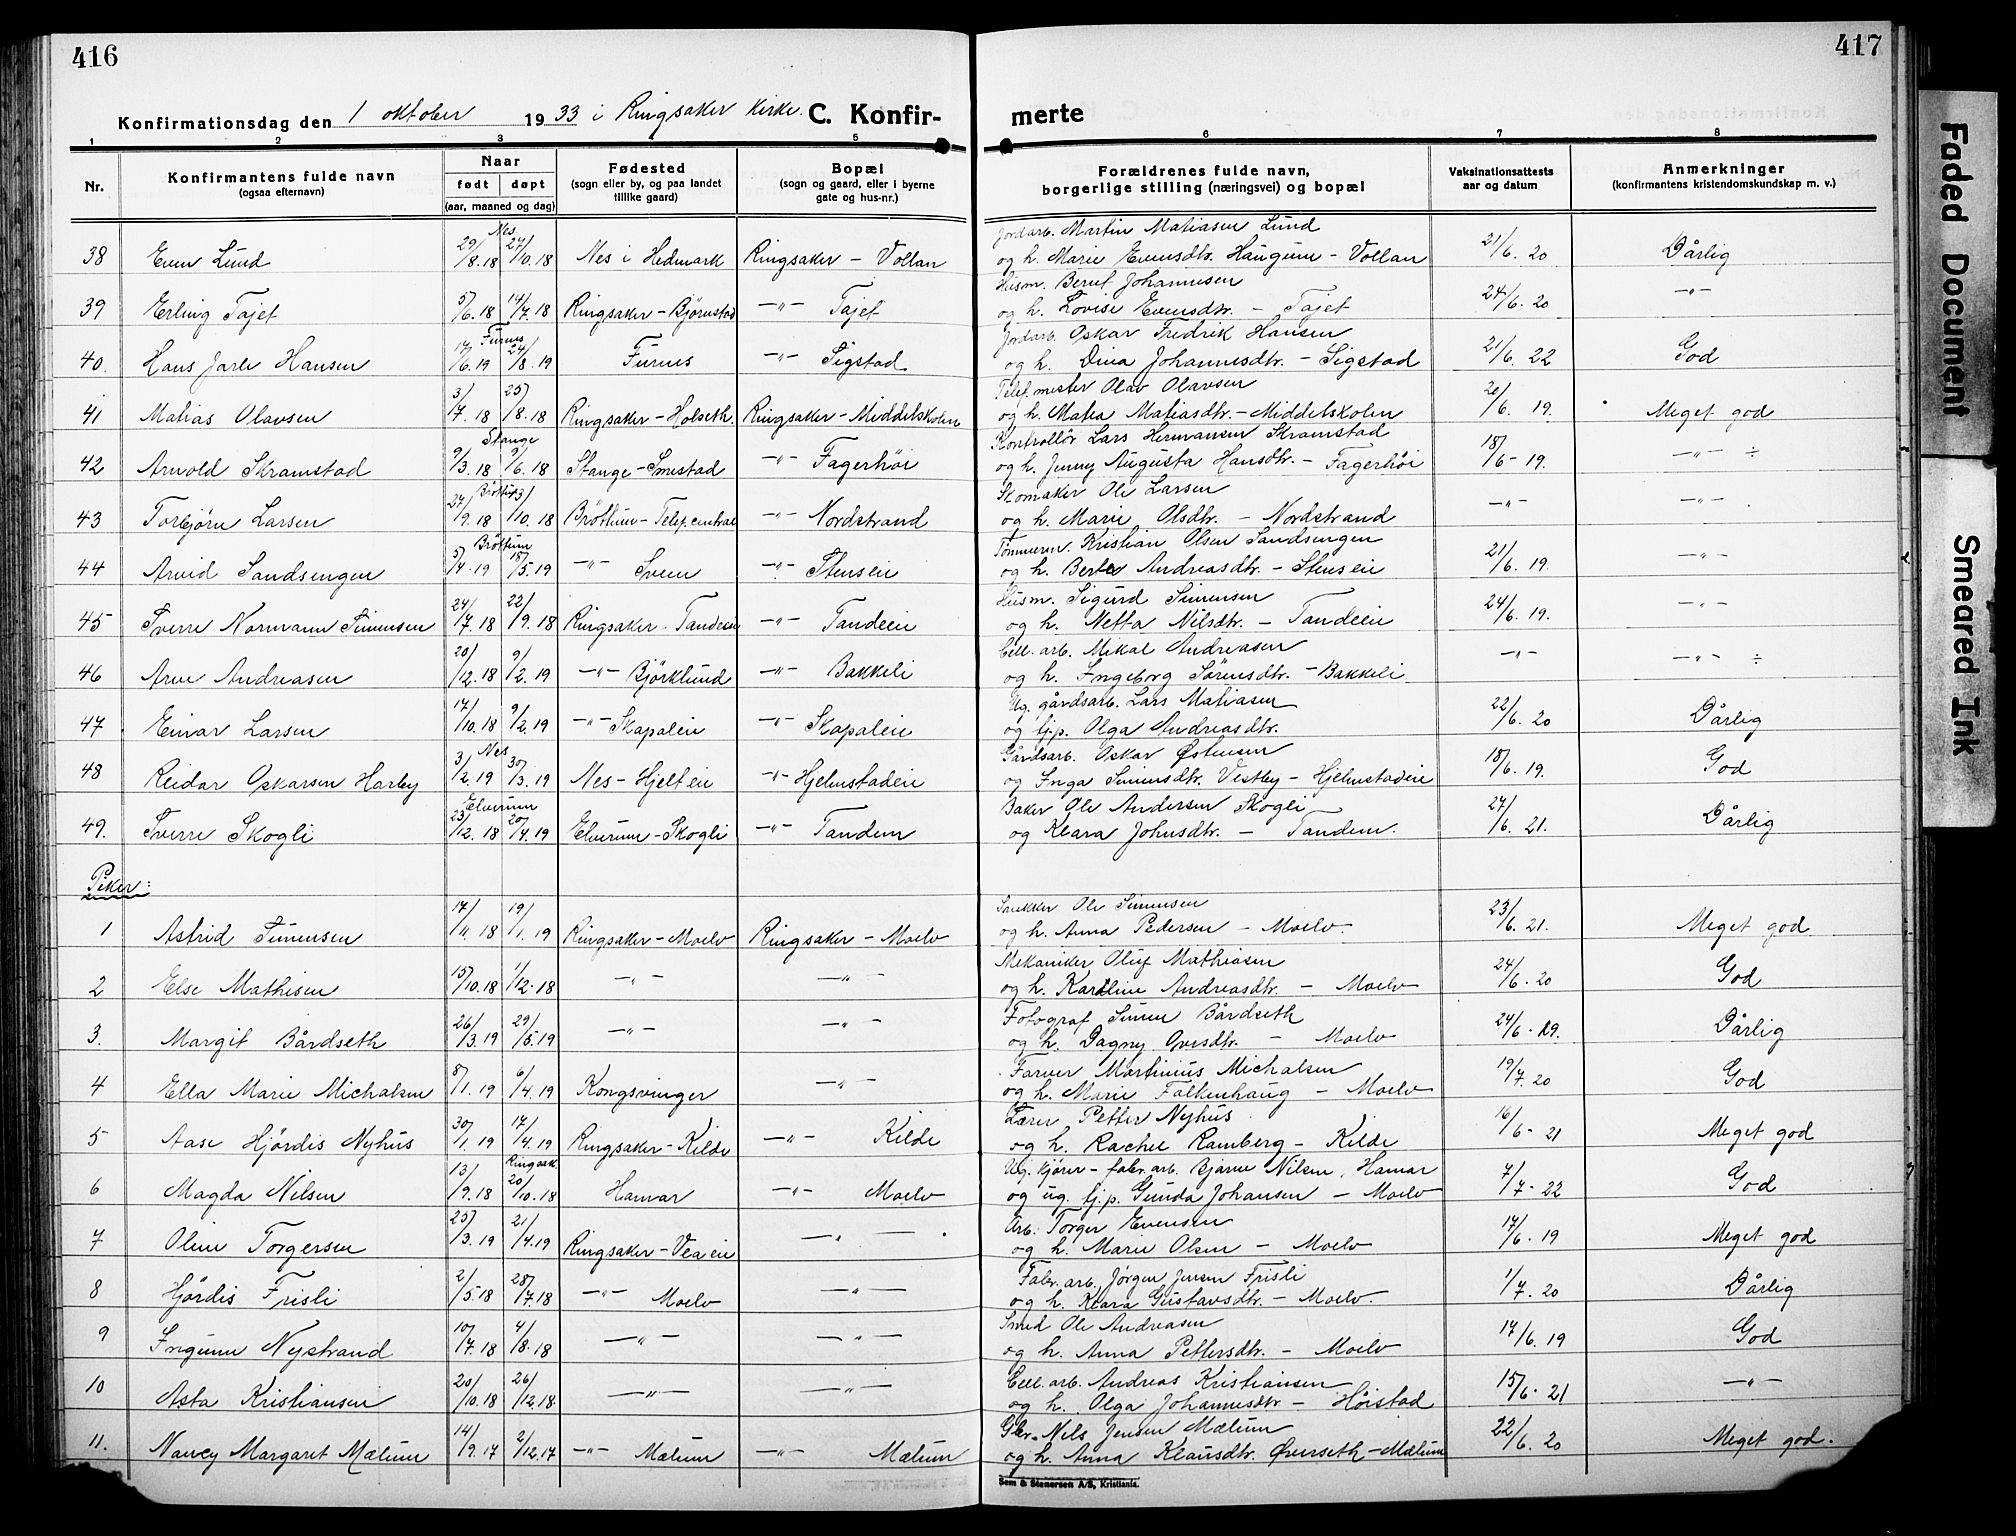 416
417
Konfirmationsdag den 1 oktober 1933 i Ringsaker kirke. C. Konfir-
merte
1 2 3 4 5 6 7 8
Nr. Konfirmantens fulde navn (ogsaa efternavn) Naar født døpt (aar, maaned og dag) Fødested (sogn eller by, og paa landet tillike gaard) Bopæl (sogn og gaard, eller i byerne gate og hus-nr.) Forældrenes fulde navn, borgerlige stilling (næringsvei) og bopæl Vaksinationsattests aar og datum Anmerkninger (konfirmantens kristendomskundskap m. v.)
Nes Jordarb. Martin Matiasen Lund
38 Even Lund 29/8.18 27/10.18 Nes i Hedmark Ringsaker - Vollan og h. Marie Evensdtr. Haugum - Vollan 21/6. 20 Dårlig
Husm. Bernt Johannesen
39 Erling Tajet 5/6.18 14/7.18 Ringsaker - Björnstad -"- Tajet og h. Lovise Evensdtr. - Tajet 24/6. 20 -"-
Furnes Jordarb. Oskar Fredrik Hansen
40. Hans Jarle Hansen 17/6.19 24/8.19 Furnes -"- Sigstad og h. Dina Johannesdtr. - Sigstad 21/6. 22 God
Telef.mester Olav Olavsen
41 Matias Olavsen 3/7.18 25/8.18 Ringsaker - Holseth. Ringsaker - Middelskolen og h. Matea Matiasdtr. - Middelskolen 20/6. 19. Meget god
Stange Kontrollör Lars Hermansen Skramstad
42 Arnold Skramstad 9/3.18 9/6.18 Stange - Smestad -"- Fagerhöi og h. Jenny Augusta Hansdtr. - Fagerhöi 18/6 - 19. -"- ÷
Bröttum Skomaker Ole Larsen
43 Torbjörn Larsen 27/9.18 13/10.18 Bröttum - Telef.central -"- Nordstrand og h. Marie Olsdtr. - Nordstrand -"- -"-
Bröttum Tömmerm. Kristian Olsen Sandsengen
44 Arvid Sandsengen 5/4.19 18/5.19 -"- Sveen -"- Stenseie og h. Berte Andreasdtr. - Stenseie 21/6. 19. -"-
Husm. Sigurd Simensen
45 Sverre Normann Simensen 24/7.18 22/9.18 Ringsaker - Tandeeie -"- Tandeeie og h. Netta Nilsdtr. - Tandeeie 24/6. 19. -"-
Cell. arb. Mikal Andreasen
46 Arne Andreasen 20/12.18 9/2.19 -"- Björklund -"- Bakkeli og h. Ingeborg Sörensdtr. - Bakkeli -"- -"- ÷
Ug. gårdsarb. Lars Matiasen
47 Einar Larsen 17/10.18 9/2.19 -"- Skapaleie -"- Skapaleie og tj.p. Olga Andreasdtr. 22/6. 20 Dårlig
Nes Gårdsarb. Oskar Østensen
48 Reidar Oskarsen Harby 3/2.19 30/3.19 Nes - Hjelteie -"- Hjelmstadeie og Inga Simensdtr. Vestby - Hjelmstadeie 18/6. 19. God
Elverum Baker Ole Andersen Skogli
49. Sverre Skogli 23/12.18 20/4.19 Elverum - Skogli -"- Tandem og Klara Johnsdtr. - Tandem. 27/6. 21. Dårlig
Piker:
Snekker Ole Simensen
1 Astrid Simensen 17/11.18 19/1.19 Ringsaker - Moelv Ringsaker - Moelv og h. Anna Pedersen - Moelv. 23/6. 21. Meget god
Mekaniker Oluf Mathiasen
2 Else Mathisen 15/10.18 1/12.18 -"- -"- og h. Karoline Andreasdtr. - Moelv 24/6. 20 God
Fotograf Simen Bårdseth
3. Margit Bårdseth 26/3.19 29/5.19 -"- -"- og h. Dagny Ovesdtr. - Moelv 24/6 - 19. Dårlig
Farver Martinius Michalsen
4 Ella Marie Michalsen 8/1.19 6/4.19 Kongsvinger -"- og h. Marie Falkenhaug - Moelv 19/7. 20 God
Lærer Petter Nyhus
5 Aase Hjördis Nyhus 30/1.19 17/4.19 Ringsaker - Kilde -"- Kilde og h. Rachel Ramberg - Kilde 16/6 - 21 Meget god
Ringsak. Ug. kjörer - fabr. arb. Bjarne Nilsen, Hamar
6 Magda Nilsen 13/9.18 20/10.18 Hamar -"- Moelv og ug. tj.p. Gunda Johansen - Moelv 7/7 - 22 God
Arb. Torger Evensen
7 Oline Torgersen 25/3.19 21/4.19 Ringsaker - Veaeie -"- og h. Marie Olsen - Moelv 17/6. 19 Meget god
Fabr. arb. Jörgen Jensen Frisli
8 Hjördis Frisli 2/5.18 28/7.18 -"- Moelv -"- og h. Klara Gustavsdtr. - Moelv. 1/7. 20 Dårlig
Smed Ole Andreasen
9 Ingunn Nystrand 10/7.18 4/8.18 -"- -"- og h. Anna Pettersdtr. - Moelv 17/6. 19 God
Cell. arb. Andreas Kristiansen
10 Asta Kristiansen 20/10.18 26/12.18. -"- -"- og h. Olga Johannesdtr. - Höistad 15/6 - 21 -"-
Gbr. Nils Jensen Mælum
11. Nancy Margaret Mælum 14/9.17 2/12.17 -"- Mælum -"- Mælum og h. Anna Klausdtr. Øverseth - Mælum 22/6. 20 Meget god.
Sem & Stenersen A/S, Kristiania.
Faded Document
Smeared Ink